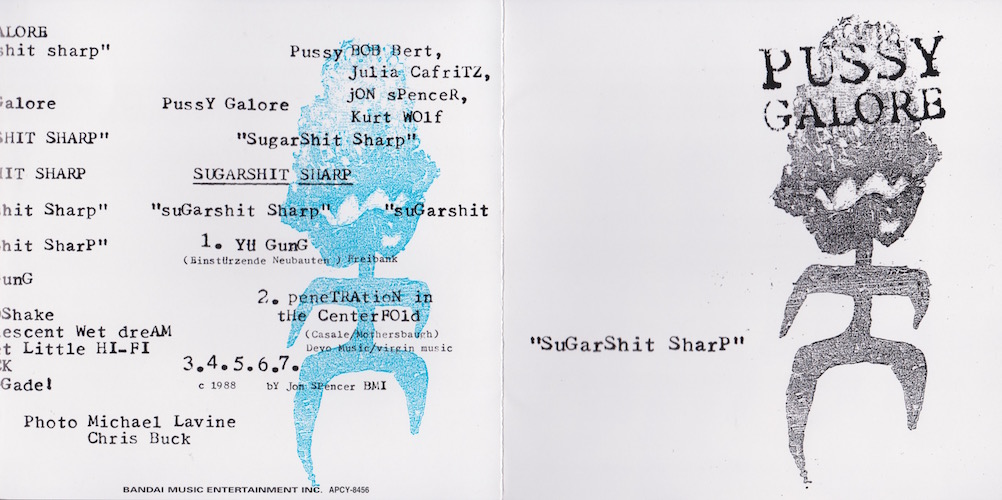 ALORE
shit sharp"
Pussy BOB Bert,
Julia CafriTZ,
jON sPenceR,
Kurt WOlf
Galore
PussY Galore
SHIT SHARP"
"SugarShit Sharp"
HIT SHARP
SUGARSHIT SHARP
shit Sharp"
"suGarshit Sharp"
"suGarshit
shit SharP"
1. YÜ GunG
(Einstürzende Neubauten ) Freibank
unG
2. peneTRAtioN in
tHe CenterFOld
(Casale/Mothersbaugh)
Devo Music/virgin music
oShake
lescent Wet dreAM
et Little HI-FI
CK
Gade!
3.4.5.6.7.
c 1988 bY Jon SPencer BMI
Photo Michael Lavine
Chris Buck
BANDAI MUSIC ENTERTAINMENT INC. APCY-8456
PUSSY
GALORE
"SuGarShit SharP"